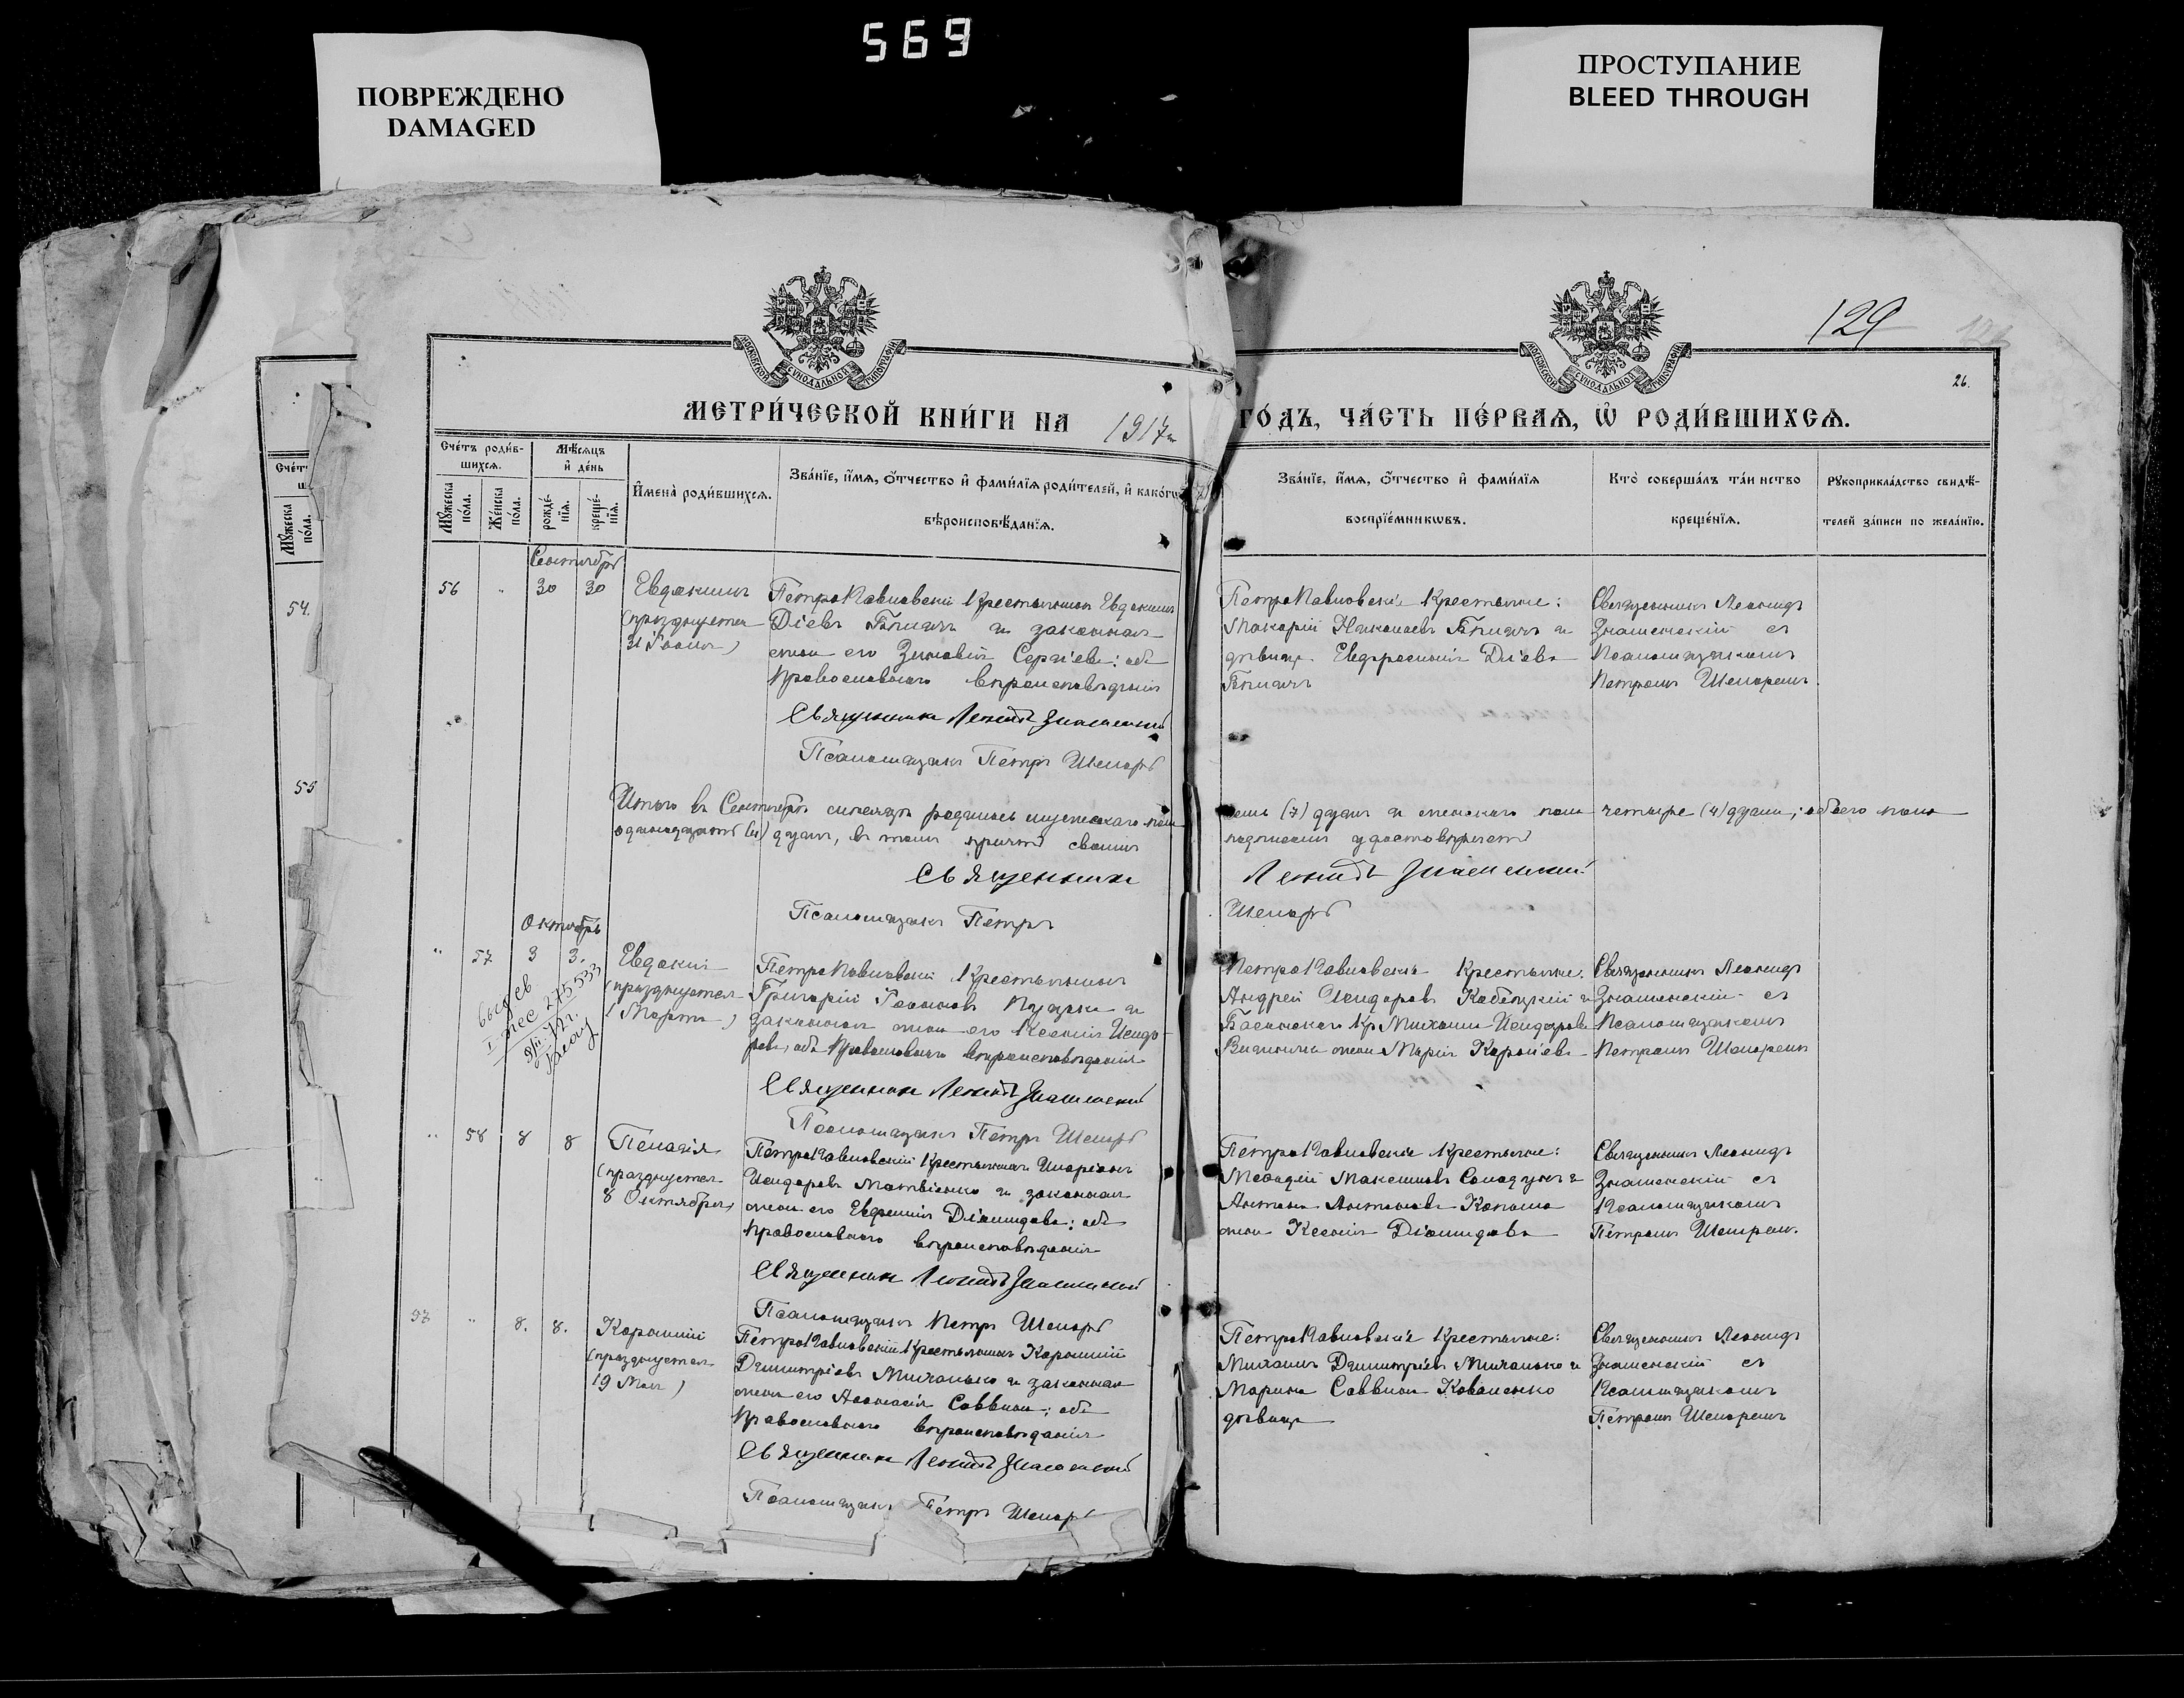 569
ПОВРЕЖДЕНО
DAMAGED
ПРОСТУПАНИЕ
BLEED THROUGH
129
26.
МОСКОВСКОЙ СѴНОДАЛЬНОЙ ТИПОГРАФІИ
МОСКОВСКОЙ СѴНОДАЛЬНОЙ ТИПОГРАФІИ
МЕТРИ́ЧЕСКОЙ КНИ́ГИ НА 1917 ГО́ДЪ, ЧА́СТЬ ПЕ́РВАЯ, Ѿ РОДИ́ВШИХСЯ.
Сче́тъ роди́в-
шихся.
Мѣсяцъ
и҆ де́нь
Мꙋ́жеска по́ла.
Же́нска по́ла.
рожде́-
нїѧ.
креще́-
нїѧ.
И҆мена̀ роди́вшихся.
Зва́нїе, и҆́мя, ѻ҆́тчество и҆ фами́лїя роди́телей, и҆ како́гѡ
вѣроисповѣ́данїя.
Зва́нїе, и҆́мя, ѻ҆́тчество и҆ фами́лїя
воспрїе́мникѡвъ.
Кто̀ соверша́лъ та́инство
креще́нїя.
Рꙋкоприкла́дство свидѣ́-
телей за́писи по жела́нїю.
54.
55
Сентябрь
56 " 30 30
Евдокимъ
(празднуется
31 Іюля)
ПетроПавловскій крестьянинъ Евдокимъ
Діевъ и законная
жена его Зиновія Сергіева: оба
православнаго вѣроисповѣданія
Священникъ Леонидъ Знаменскій
Псаломщикъ Петръ Шепаръ
ПетроПавловскіе крестьяне:
Макарій Николаевъ и
дѣвица Евфросинія Діева
Священникъ Леонидъ
Знаменскій съ
Псаломщикомъ
Петромъ Шепаремъ
Итого въ Сентябрѣ мѣсяцѣ родилось мужескаго пола семь (7) душъ и женскаго пола четыре (4) души; обоего пола
одинадцать (11) душъ, въ томъ причтъ своимъ подписомъ удостовѣряетъ
Священникъ Леонидъ Знаменскій
Псаломщикъ Петръ Шепаръ
Октябрь
" 57 3 3.
275533
Евдокія
(празднуется
1 Марта)
ПетроПавловскій крестьянинъ
Григорій и
законная жена его Ксенія Исидо-
рова, оба православнаго вѣроисповѣданія
Священникъ Леонидъ Знаменскій
Псаломщикъ Петръ Шепаръ
ПетроПавловскіе крестьяне:
Андрей Исидоровъ и
кр. Михаила Исидорова
жена Марія
Священникъ Леонидъ
Знаменскій съ
Псаломщикомъ
Петромъ Шепаремъ
" 58 8 8
Пелагія
(празднуется
8 Октября)
ПетроПавловскій крестьянинъ Иларіонъ
Исидоровъ Матвіенко и законная
жена его Евфимія Діомидова: оба
православнаго вѣроисповѣданія
Священникъ Леонидъ Знаменскій
Псаломщикъ Петръ Шепаръ
ПетроПавловскіе крестьяне:
Меѳодій Максимовъ и
Антона Антонова
жена Ксенія Діомидова
Священникъ Леонидъ
Знаменскій съ
Псаломщикомъ
Петромъ Шепарем.
57 " 8. 8.
Корнилій
(празднуется
19 Мая)
ПетроПавловскій крестьянинъ Корнилій
Димитріевъ Михалько и законная
жена его Анастасія Саввина; оба
православнаго вѣроисповѣданія
Священникъ Леонидъ Знаменскій
Псаломщикъ Петръ Шепаръ
ПетроПавловскіе крестьяне:
Михаилъ Димитріевъ Михалько и
Марина Саввина Коваленко
дѣвица
Священникъ Леонидъ
Знаменскій съ
Псаломщикомъ
Петромъ Шепаремъ